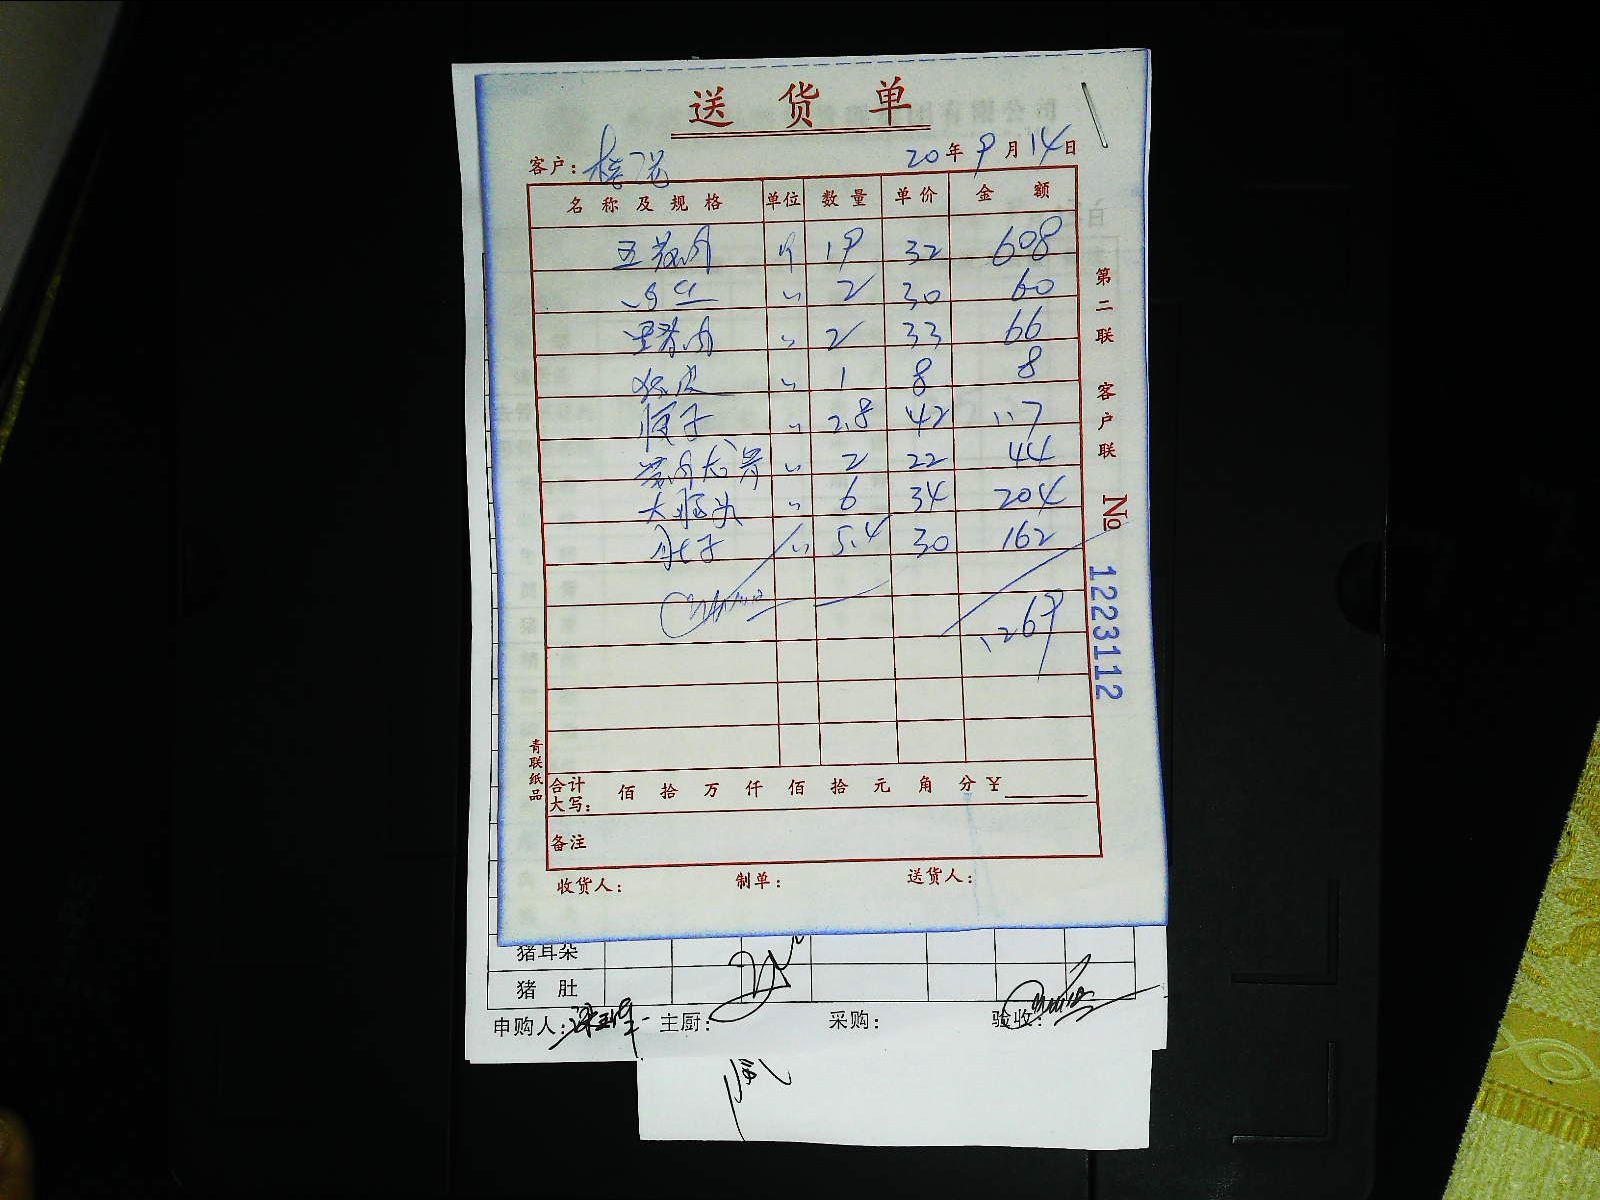 送货单
客户：
20年9月14日
名称及规格 单位 数量 单价 金额
五花肉 斤 19 32 608
肉丝 〃 2 30 60
里脊肉 〃 2 33 66
猪皮 〃 1 8 8
腰子 〃 2.8 42 117
带肉龙骨 〃 2 22 44
大肠头 〃 6 34 204
肚子 〃 5.4 30 162
1269
合计大写： 佰 拾 万 仟 佰 拾 元 角 分 ¥
备注
收货人： 制单： 送货人：
第二联 客户联 № 1223112
青联纸品
猪耳朵
猪肚
申购人： 主厨： 采购： 验收：